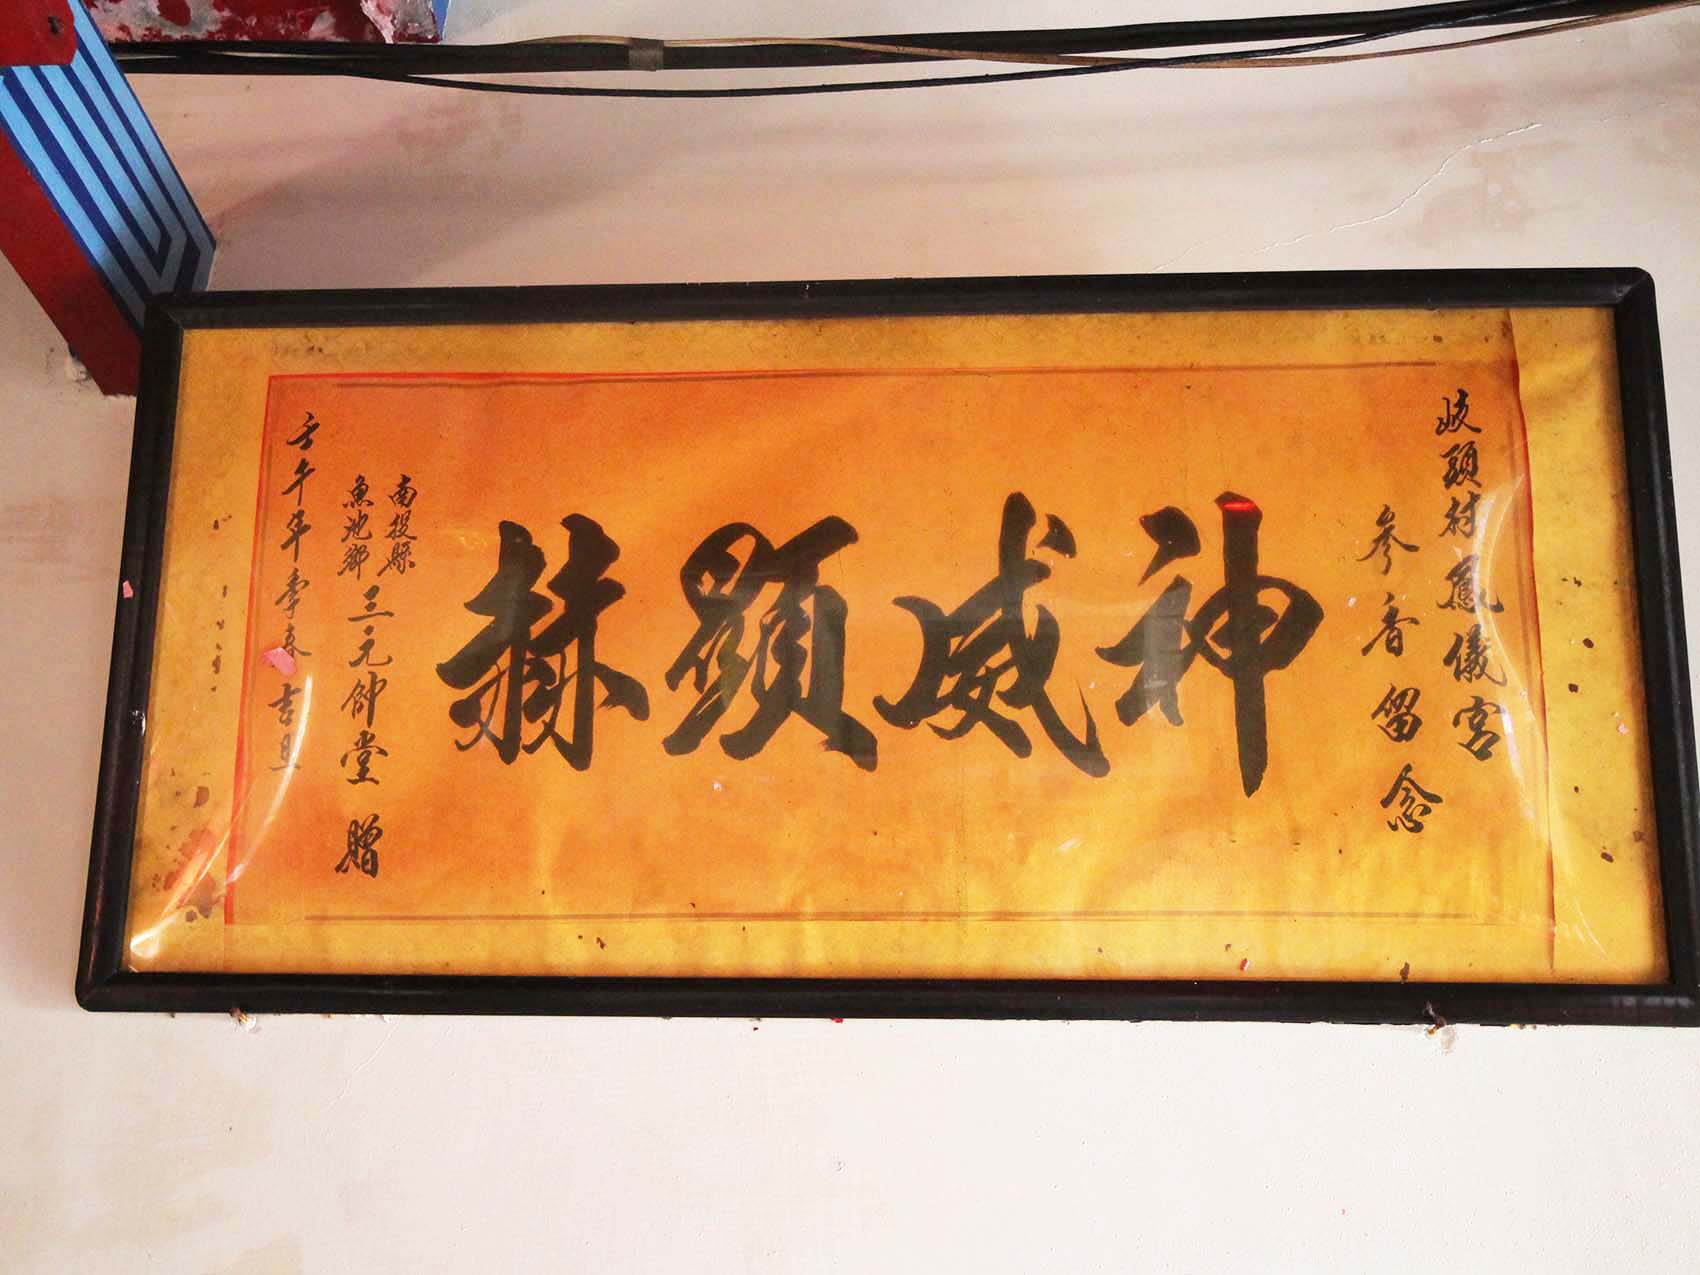 岐頭村鳳儀宮
參香留念
神威顯赫
南投縣
魚池鄉
三元帥堂 贈
壬午年季春吉旦